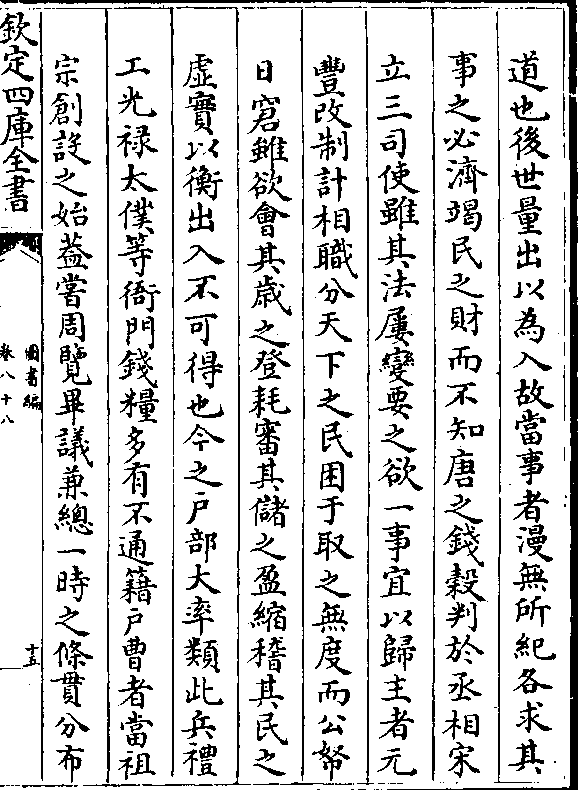 道也後世量出以為入故當事者漫無所紀各求其
事之必濟竭民之財而不知唐之錢穀判於丞相宋
立三司使雖其法屢變要之欲一事宜以歸主者元
豐改制計相職分天下之民困于取之無度而公帑
日窘雖欲會其歳之登耗審其儲之盈縮稽其民之
虛實以衡出入不可得也今之戸部大率類此兵禮
工光禄太僕等衙門錢糧多有不通籍戸曹者當祖
宗創設之始葢嘗周覽畢議兼總一時之條貫分布
欽定四庫全書
圖書編
卷八十八
十五